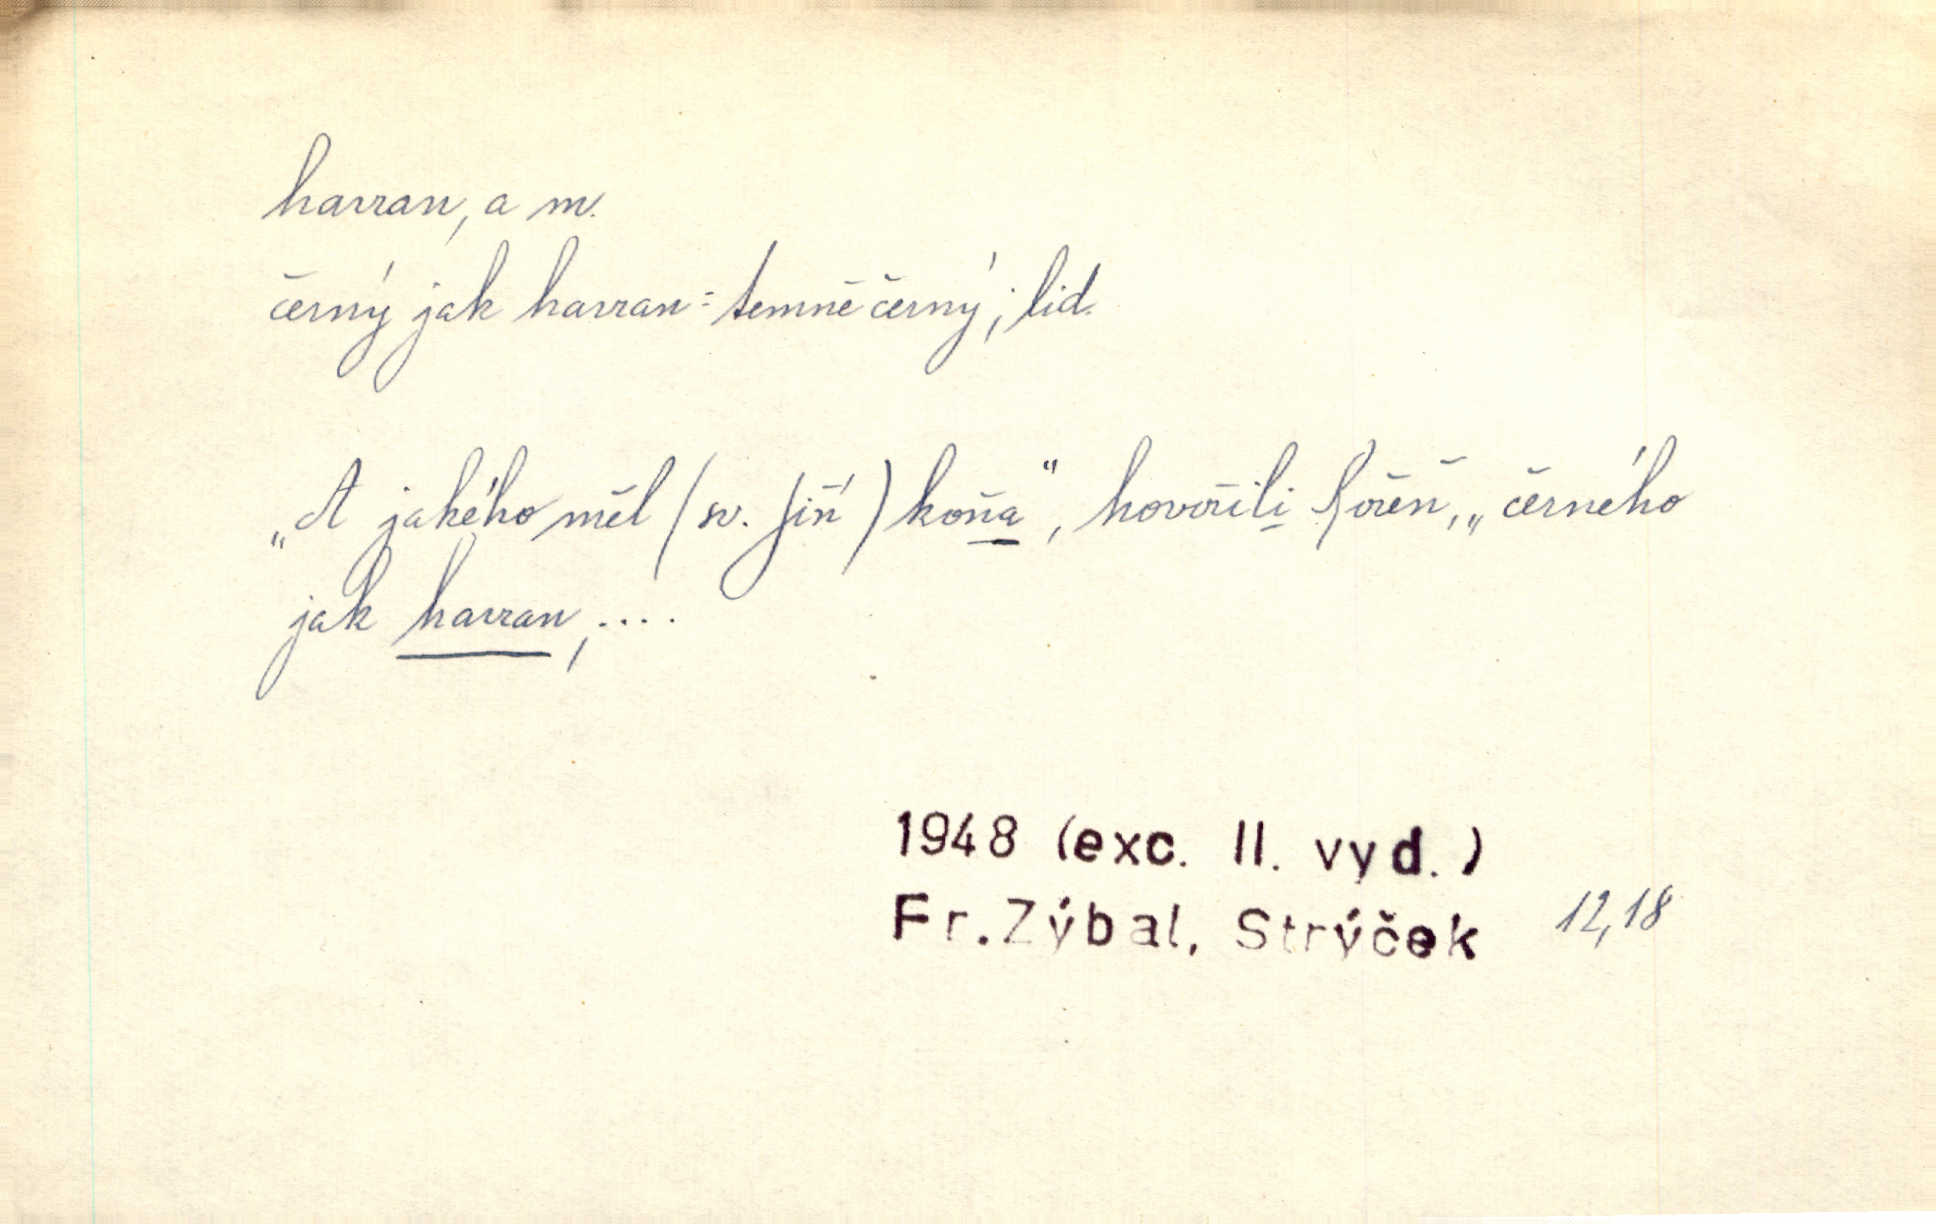 havran, a m.
černý jak havran = temně černý; lid.
„A jakého měl (sv. Jiří) koňa“, hovořili „černého
jak havran, ....
1948 (exc. II. vyd.)
Fr. Zýbal, Strýček 12,18